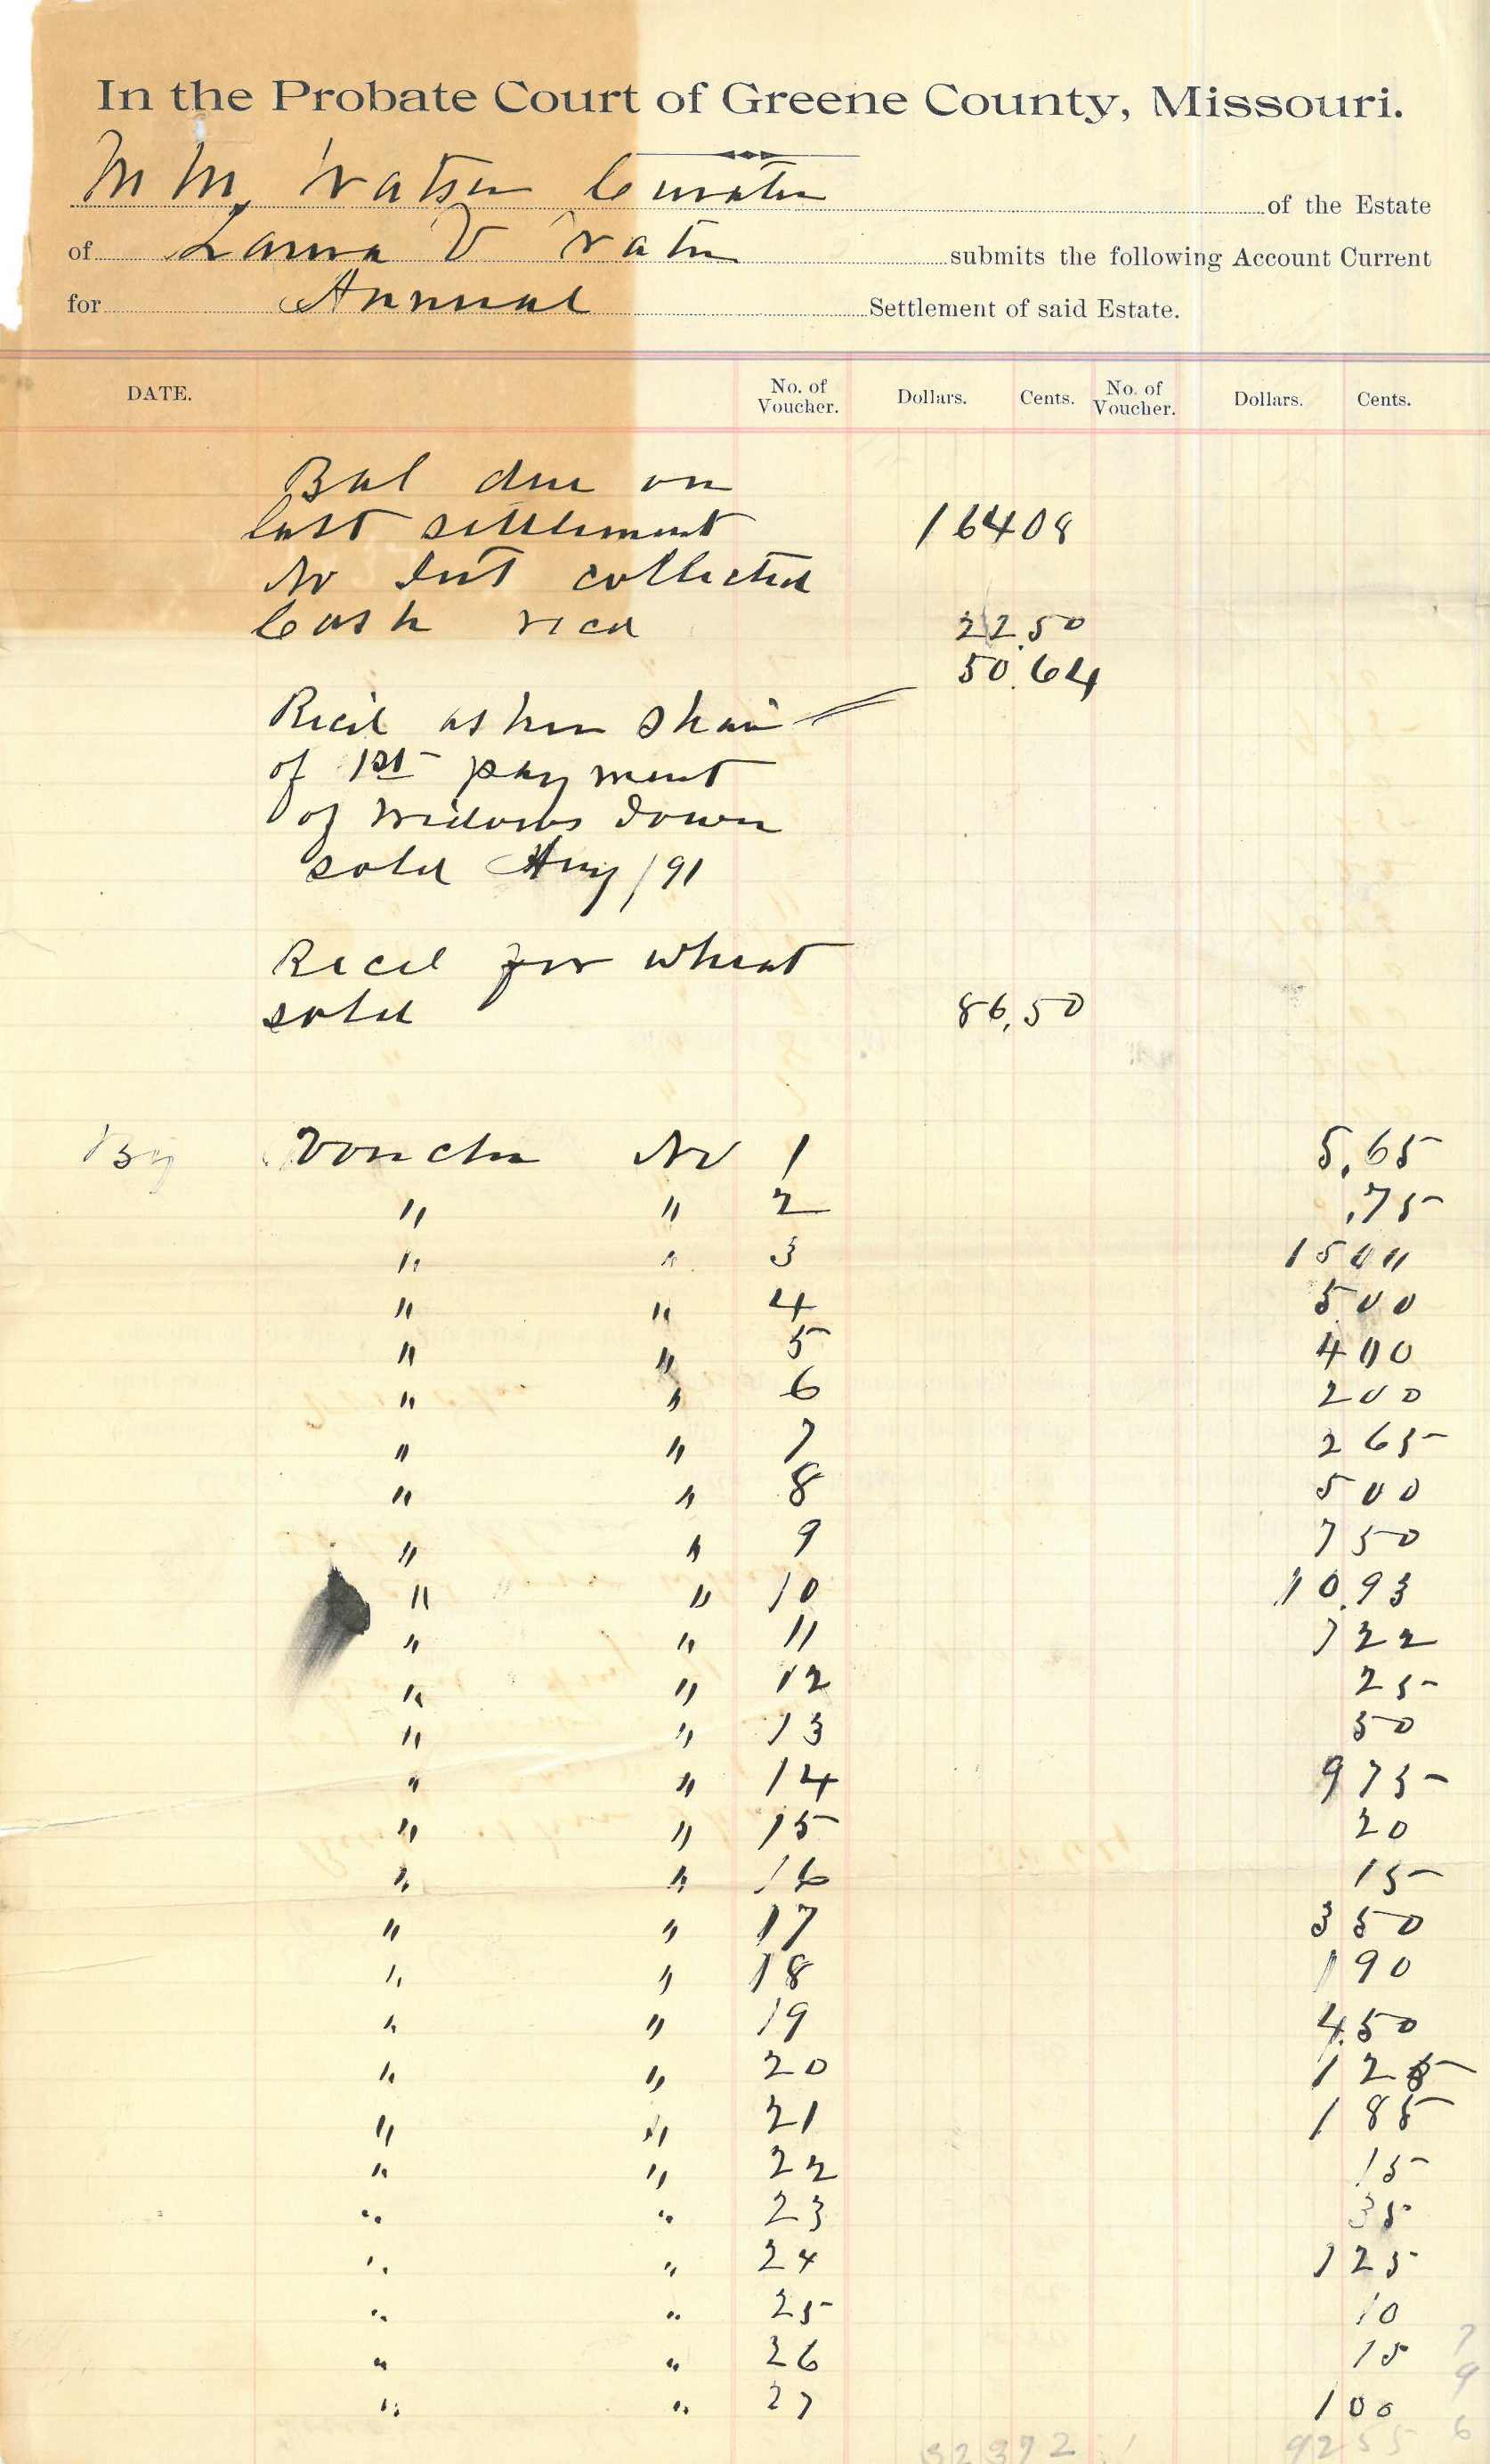 In the Probate Court of Greene County, Missouri.
M M, Watson Curator of the Estate
of Laura V Watson submits the following Account Current
for Annual Settlement of said Estate.
DATE. No. of Voucher. Dollars. Cents. No. of Voucher. Dollars. Cents.
Bal due on
last settlement 16408
No Int collected
Cash recd 22.50
50.64
Recd as her share
of 1st payment
of widows dower
sold Aug /91
Recd for wheat
sold 86.50
By Voucher No 1 5.65
" " 2 .75
" " 3 1500
" " 4 500
" " 5 400
" " 6 200
" " 7 265
" " 8 500
" " 9 750
" " 10 10.93
" " 11 722
" " 12 25
" " 13 50
" " 14 975
" " 15 20
" " 16 15
" " 17 350
" " 18 190
" " 19 4.50
" " 20 125
" " 21 185
" " 22 15
" " 23 35
" " 24 125
" " 25 10
" " 26 15
" " 27 100
32372 9255